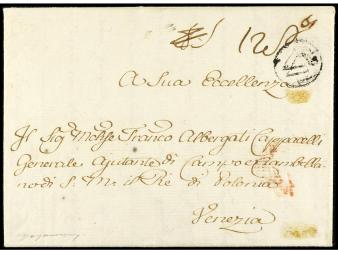 A Sua Eccellenza
Il Sig Franco Albergati Capacelli
Generale Ajutante di Campo e Ciambella
no di S. M. il Re di Polonia
Venezia